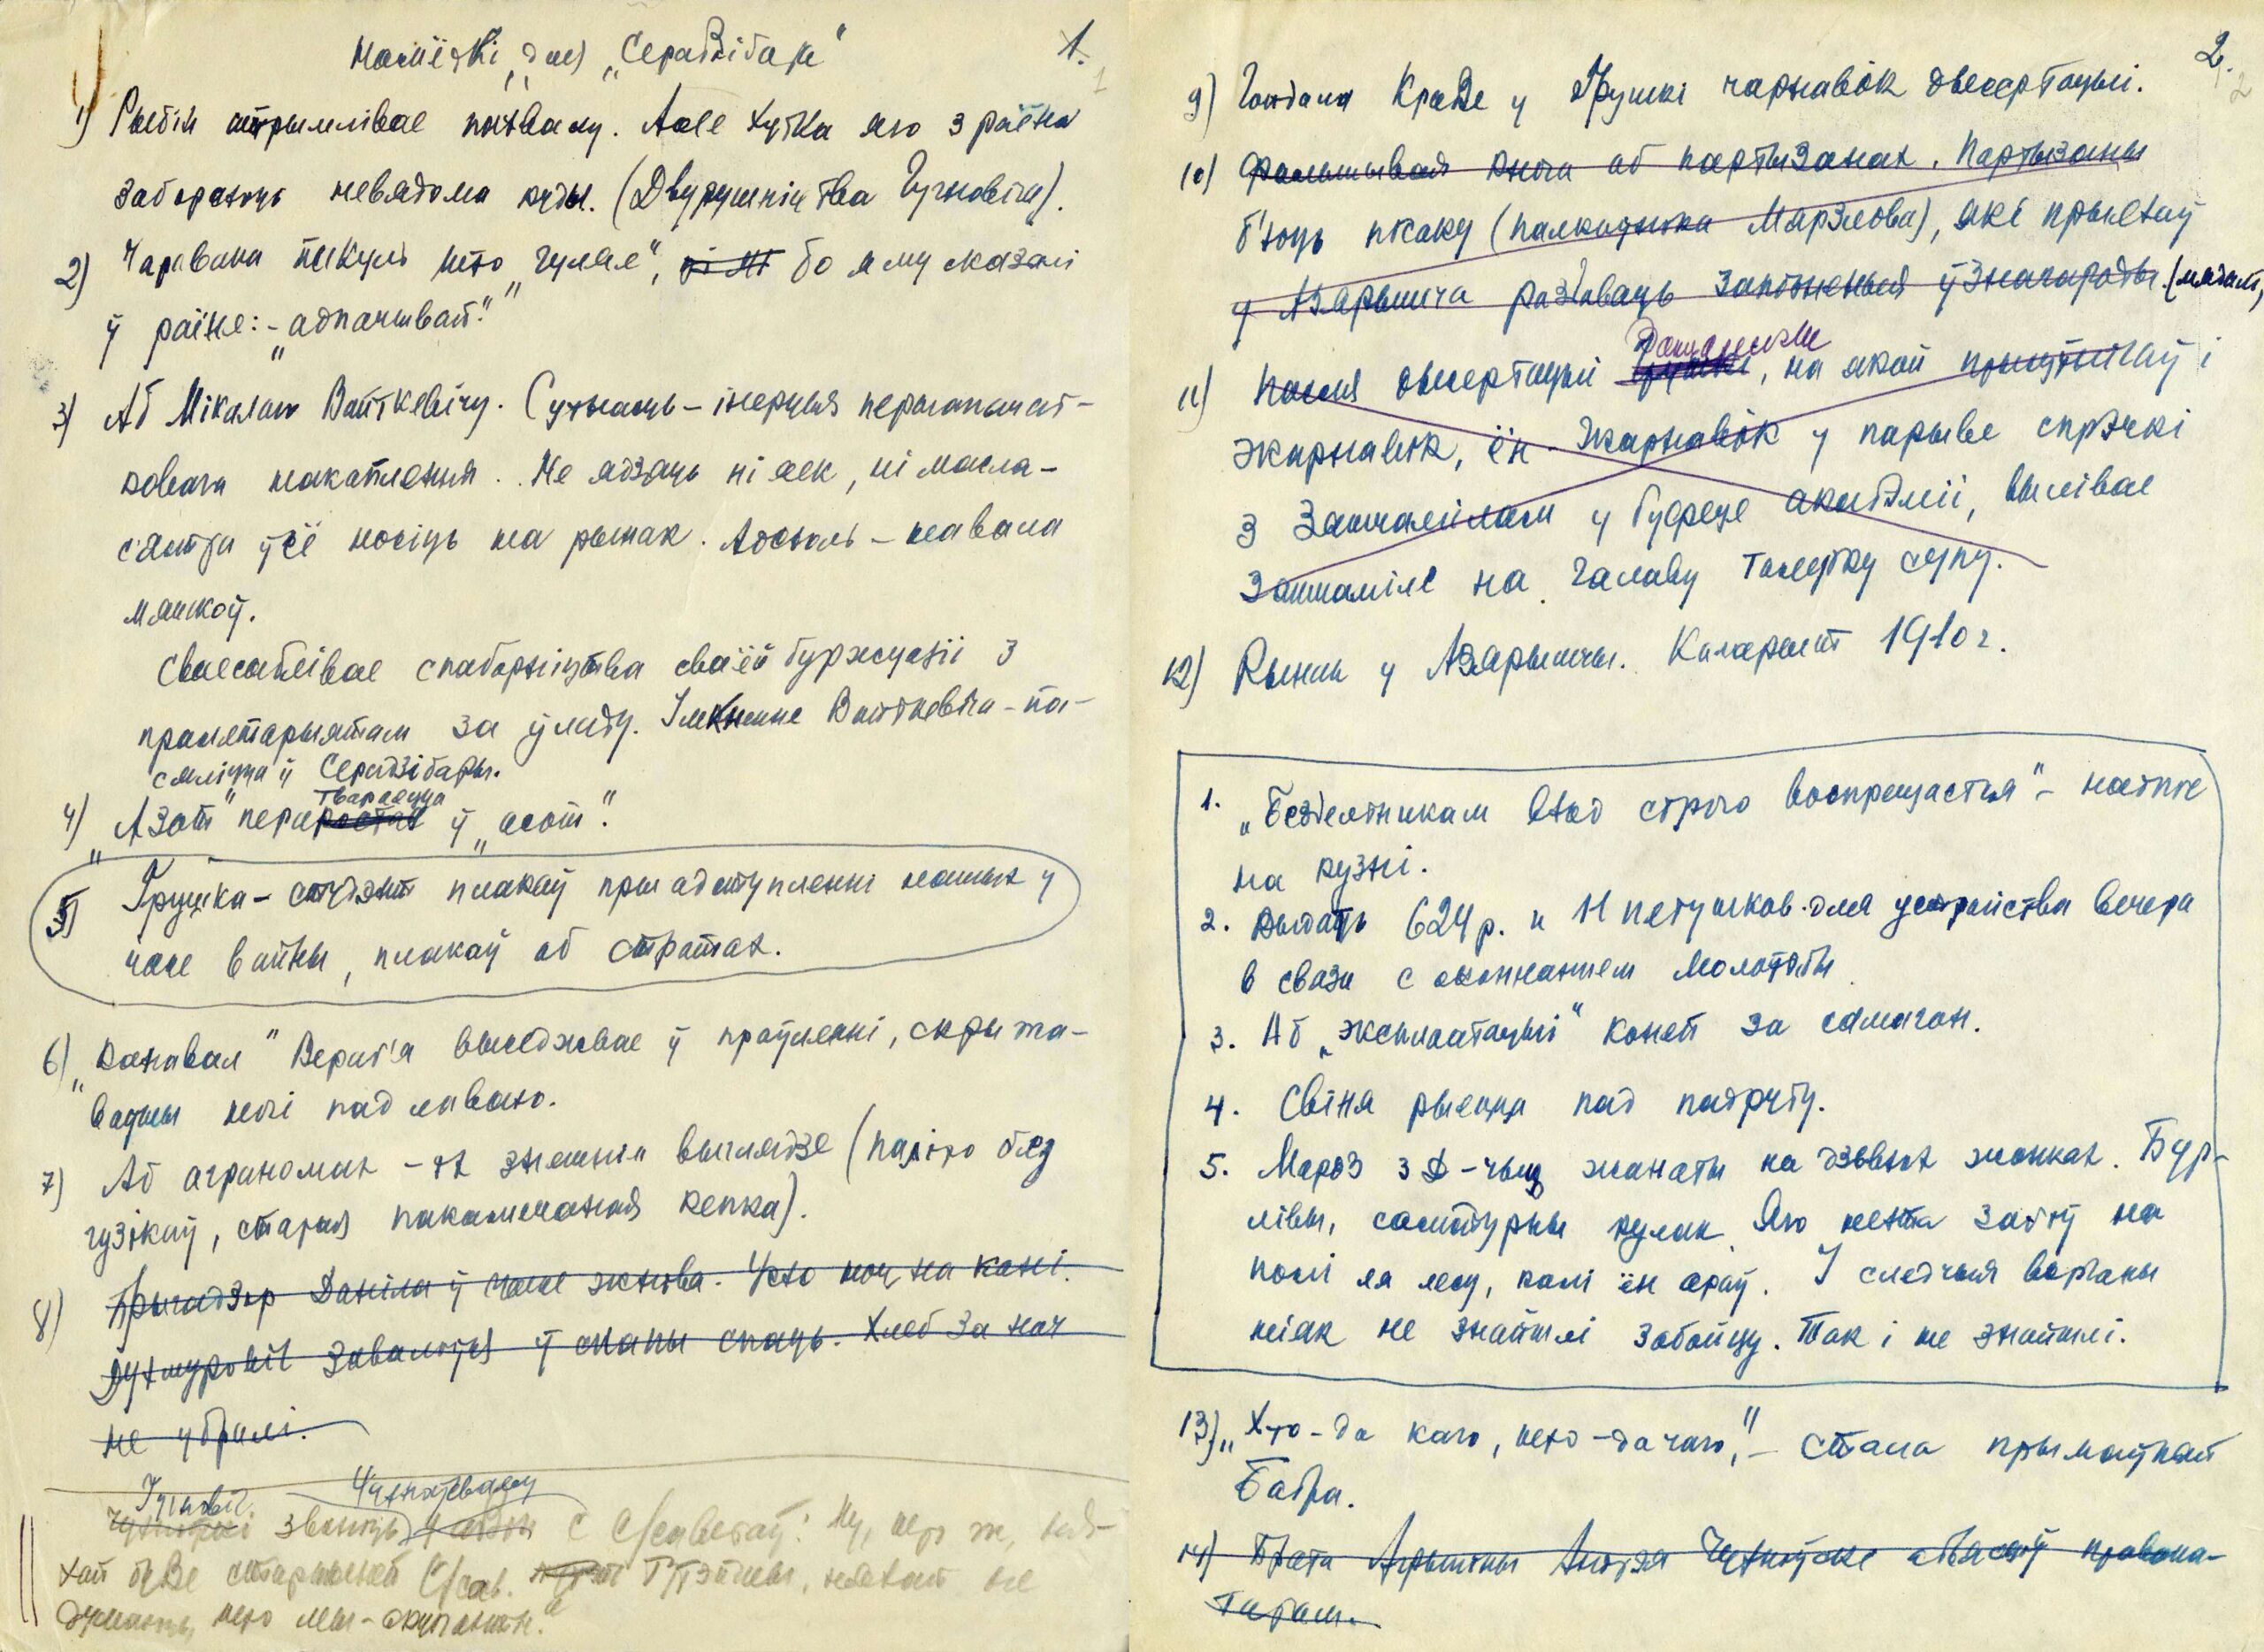 1.
Нататкі для „Серадзібар“
1) Рыбін атрымлівае пахвалу. Але хутка яго з раёна
забіраюць невядома куды. (Двурушніцтва Гусновіч).
2) Чаравана пякуць што „гуляе“, бо яму сказалі
ў раёне: – „адпачывай“.
3) Аб Мікалаю Вайткевічу. Сутнасць – інерцыя першапачат-
ковага накаплення. Не ядзяць ні яек, ні масла –
усё носіць на рынак. Адсюль – навала
мяшкоў.
Своеасаблівае спаборніцтва сваёй буржуазіі з
пралетарыятам за ўладу. Імкненне Вайткевіча – па-
сяліцца ў Серадзібары.
4) „Азот“ ператвараецца ў „асот“.
5) Грушка – студэнт плакаў пры адступленні нашых у
часе вайны, плакаў аб стратах.
6) „Канавал“ Вераб'я выседжвае ў праўленні, скрыжа-
ваўшы ногі пад лаваю.
7) Аб аграномах – іх знешнім выглядзе (паліто без
гузікаў, старая пакамечаная кепка).
8) Брыгадзір Даніла ў часе жніва. Усю ноч на кані.
заваліўся ў снапы спаць. Хлеб за ноч
не убралі.
Гусновіч Чухноўскаму
звоняць с с/саветаў: Ну, што ж, няхай
будзе старшынёй с/сав. няхай не
думаюць што мы – акупанты.“
2.
9) Гандама крадзе у Грушкі чарнавік дысертацыі.
10) Фальшывая кніга аб партызанах. Партызаны
б'юць пісаку (палкоўніка Марзлова), які прыехаў
у Азарычы раздаваць запозненыя ўзнагароды (медалі,
11) Пасля дысертацыі, на якой прысутнічаў і
Жарнавік, ён Жарнавік у парыве спрэчкі
з у буфеце акадэміі, вылівае
на галаву талерку супу.
12) Рынак у Азарычы. Каларыт 1910 г.
1. „Бездельникам вход строго воспрещается“ – надпіс
на кузні.
2. Выдать 624 р. и 11 петушков для устройства вечера
в связи с окончанием молотьбы
3. Аб „эксплаатацыі“ коней за самагон.
4. Свіня рыецца пад пабудову.
5. Мароз з Д-чыц жанаты на дзвюх жонках. Бур-
лівы, самадурны кулак. Яго нехта забіў на
полі ля лесу, калі ён араў. І следчыя ворганы
ніяк не знайшлі забойцу. Так і не знайшлі.
13) „Хто – да каго, што – да чаго“, – стала прымаўкай
Бабра.
14) Брата Агрыпіны Андрэя Чухноўскі аб'явіў правака-
тарам.